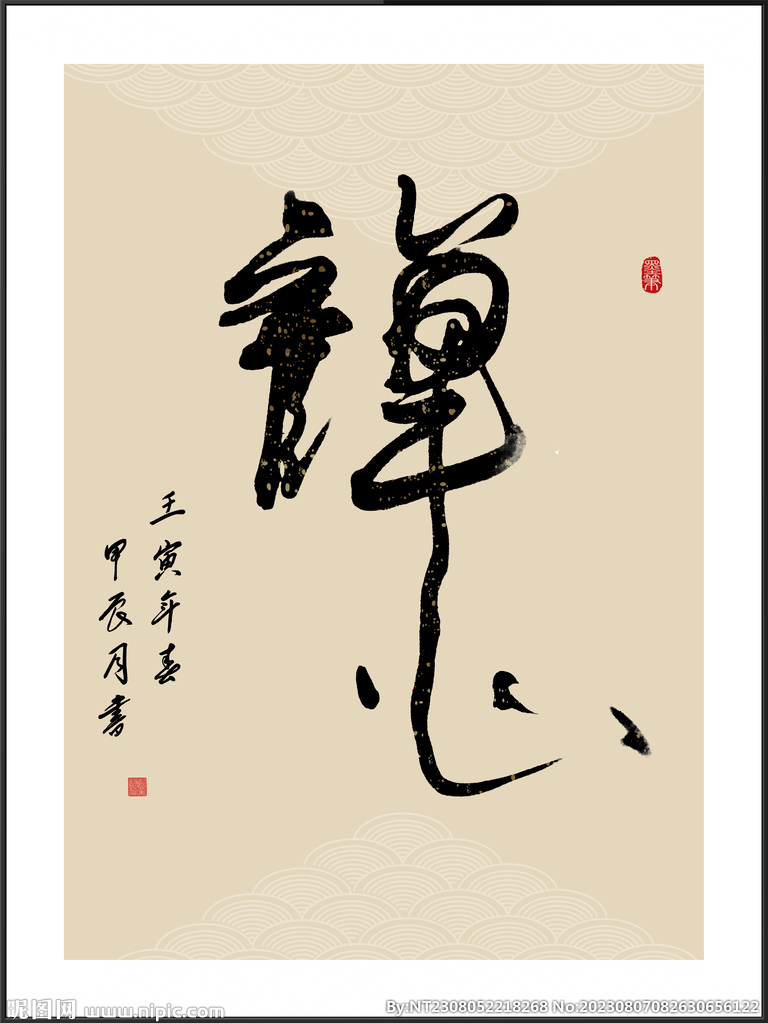 禪心
壬寅年春
甲辰月書
昵图网 www.nipic.com
By:NT2308052218268 No:20230807082630656122